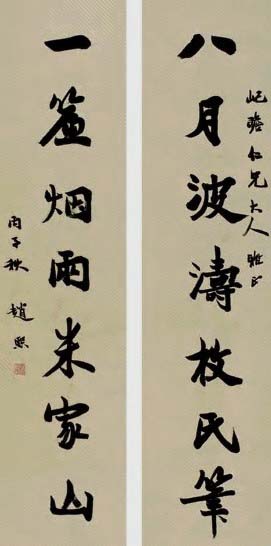 八月波濤枚氏筆
屺瞻仁兄大人雅正
一簾烟雨米家山
丙子秋 趙熙